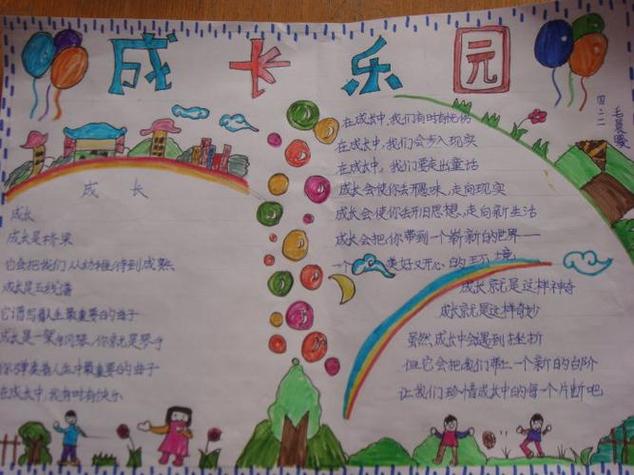 成长乐园
四二
成长
成长
成长是桥梁
它会把我们从幼稚,待到成熟
成长是五线谱
它谱写着人生最重要的曲子
成长是一架钢琴,你就是琴手
你弹奏着人生中最重要的曲子
在成长中,我有时有快乐
在成长中,我们有时有忧伤
在成长中,我们会步入现实
在成长中,我们要走出童话
成长会使你去开愚昧,走向现实
成长会使你去开旧思想,走向新生活
成长会把你带到一个崭新的世界——
一个美好又开心的环境
成长就是这样神奇
成长就是这样奇妙
虽然,成长中会遇到挫折
但它会把我们带上一个新的台阶
让我们珍惜成长中的每个片断吧